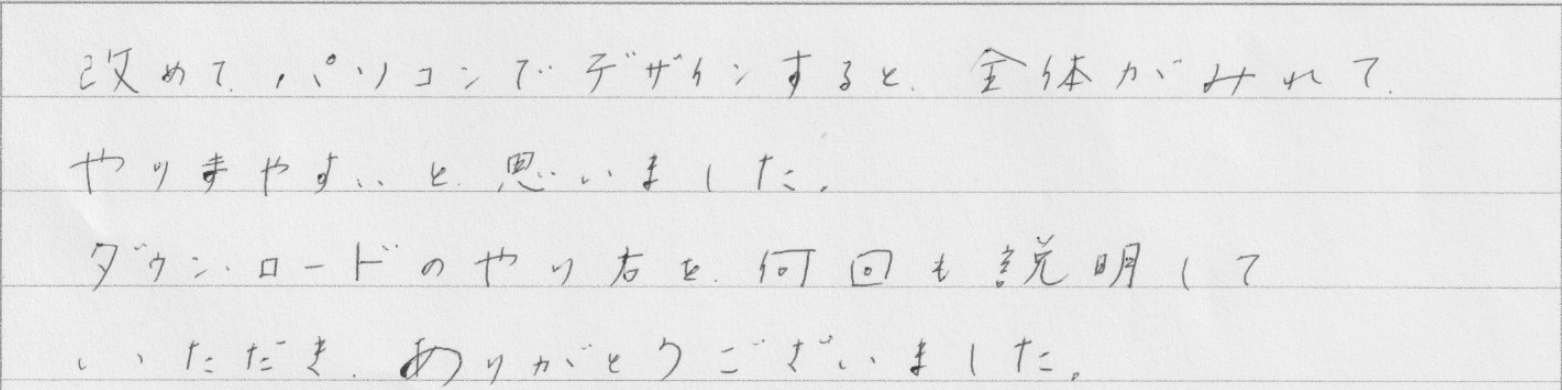 改めて、パソコンでデザインすると、全体がみれて、
やりまやすいと、思いました。
ダウンロードのやり方を、何回も説明して
いただき、ありがとうございました。